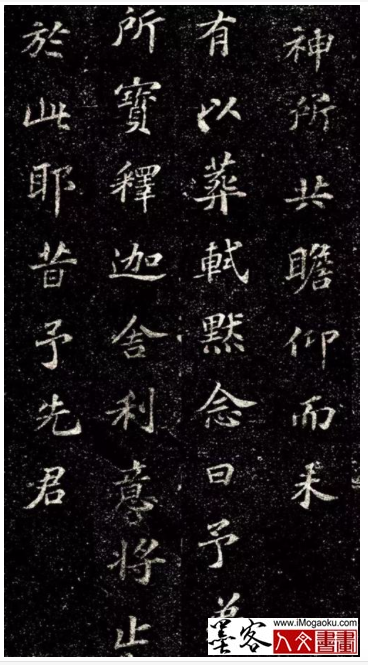 神所共瞻仰而未
有以葬軾默念曰予
所寶釋迦舍利意將止
於此耶昔予先君
墨客
www.iMogaoku.com
人文書畫